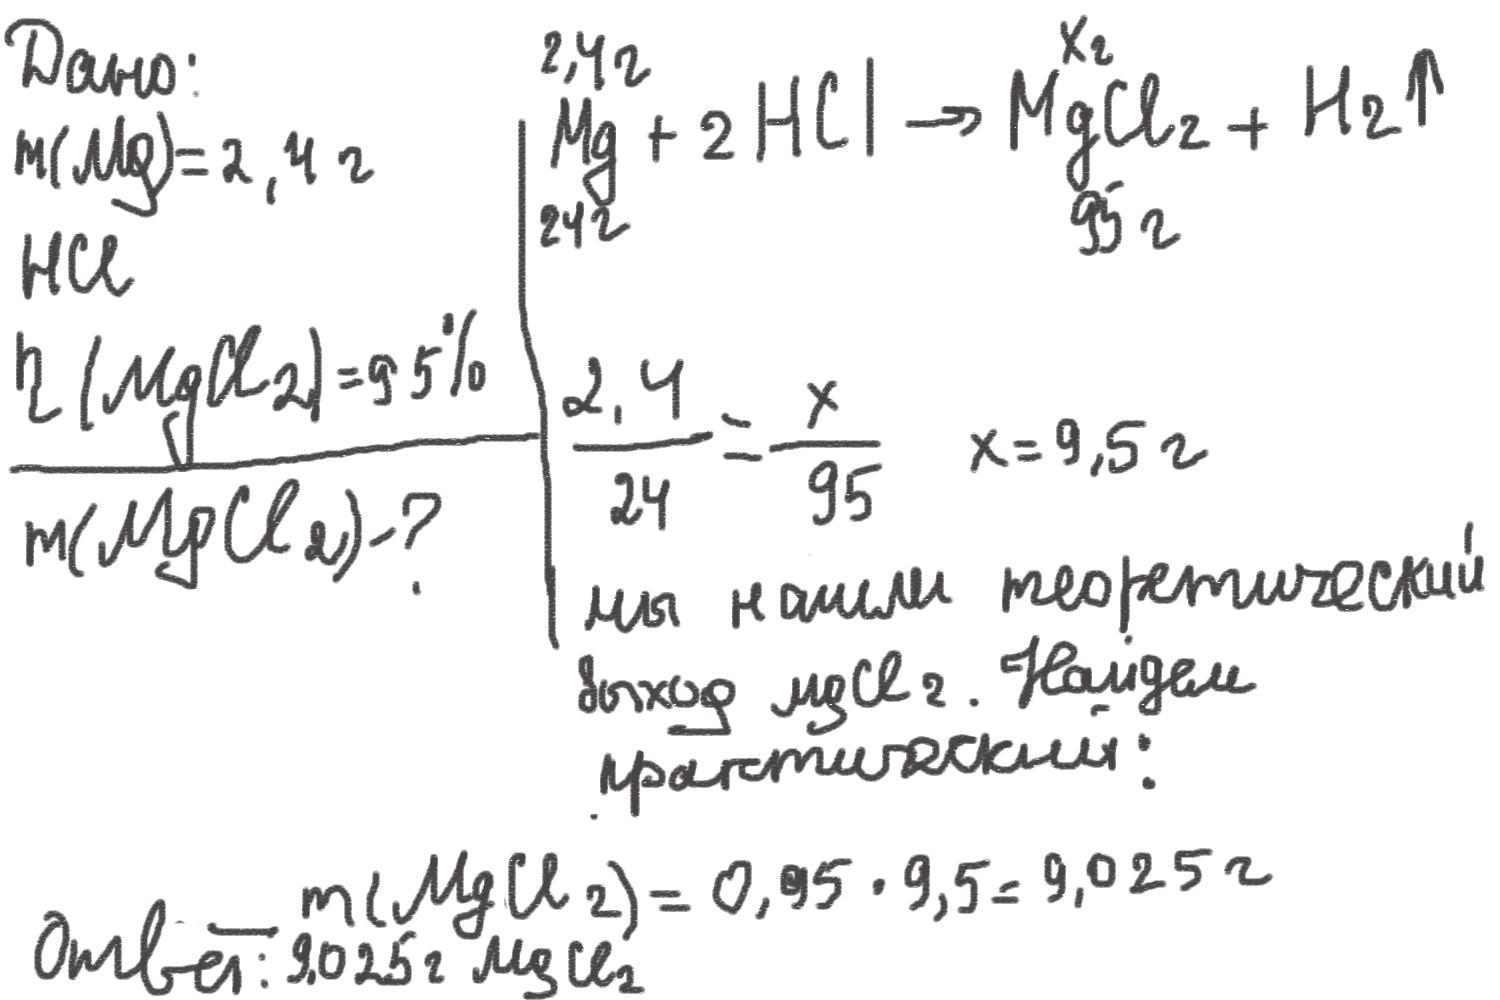 Дано:
m(Mg)=2,4 г
HCl
η(MgCl2)=95%
m(MgCl2)-?
2,4г xг
Mg + 2HCl → MgCl2 + H2↑
24г 95г
2,4/24 = x/95 x=9,5г
мы нашли теоретический
выход MgCl2. Найдем
практический:
m(MgCl2)=0,95·9,5=9,025г
Ответ: 9,025г MgCl2